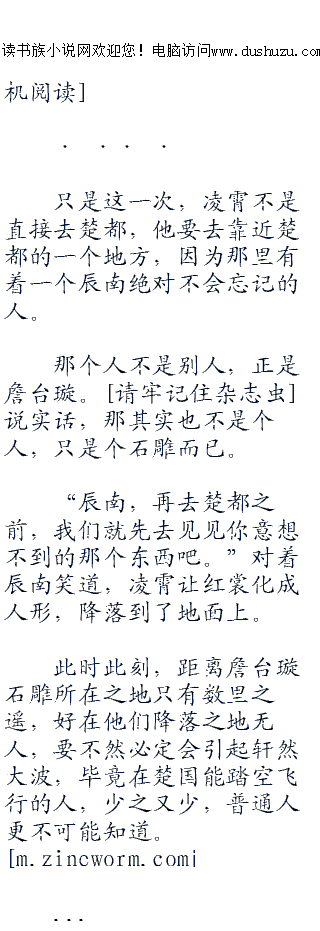 读书族小说网欢迎您！电脑访问www.dushuzu.com
机阅读]
. . . .
只是这一次，凌霄不是
直接去楚都，他要去靠近楚
都的一个地方，因为那里有
着一个辰南绝对不会忘记的
人。
那个人不是别人，正是
詹台璇。[请牢记住杂志虫]
说实话，那其实也不是个
人，只是个石雕而已。
“辰南，再去楚都之
前，我们就先去见见你意想
不到的那个东西吧。”对着
辰南笑道，凌霄让红裳化成
人形，降落到了地面上。
此时此刻，距离詹台璇
石雕所在之地只有数里之
遥，好在他们降落之地无
人，要不然必定会引起轩然
大波，毕竟在楚国能踏空飞
行的人，少之又少，普通人
更不可能知道。
[m.zincworm.com]
...